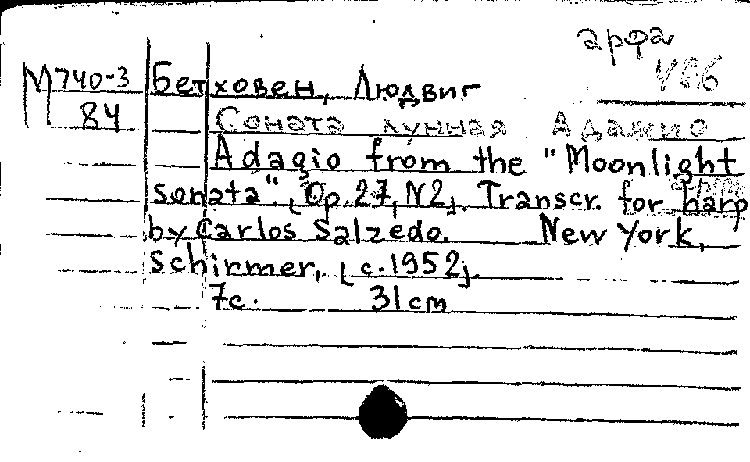 арфа
М740-3 Бетховен, Людвиг
84 Соната лунная Адажио
Adagio from the "Moonlight
sonata". [Op.27, N2]. Transcr. for harp
by Carlos Salzedo. New York,
Schirmer, [c.1952].
7с. 31cm